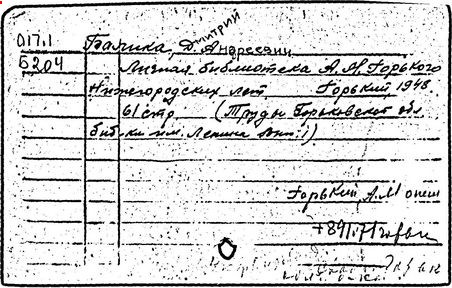 Дмитрий
017.1 Балика, Д. Андреевич
Б204 Личная библиотека А.М. Горького
Нижегородских лет Горький 1948.
61 стр. (Труды Горьковской обл.
биб-ки им. Ленина вып. 1)
Горький, А.М
+891.71